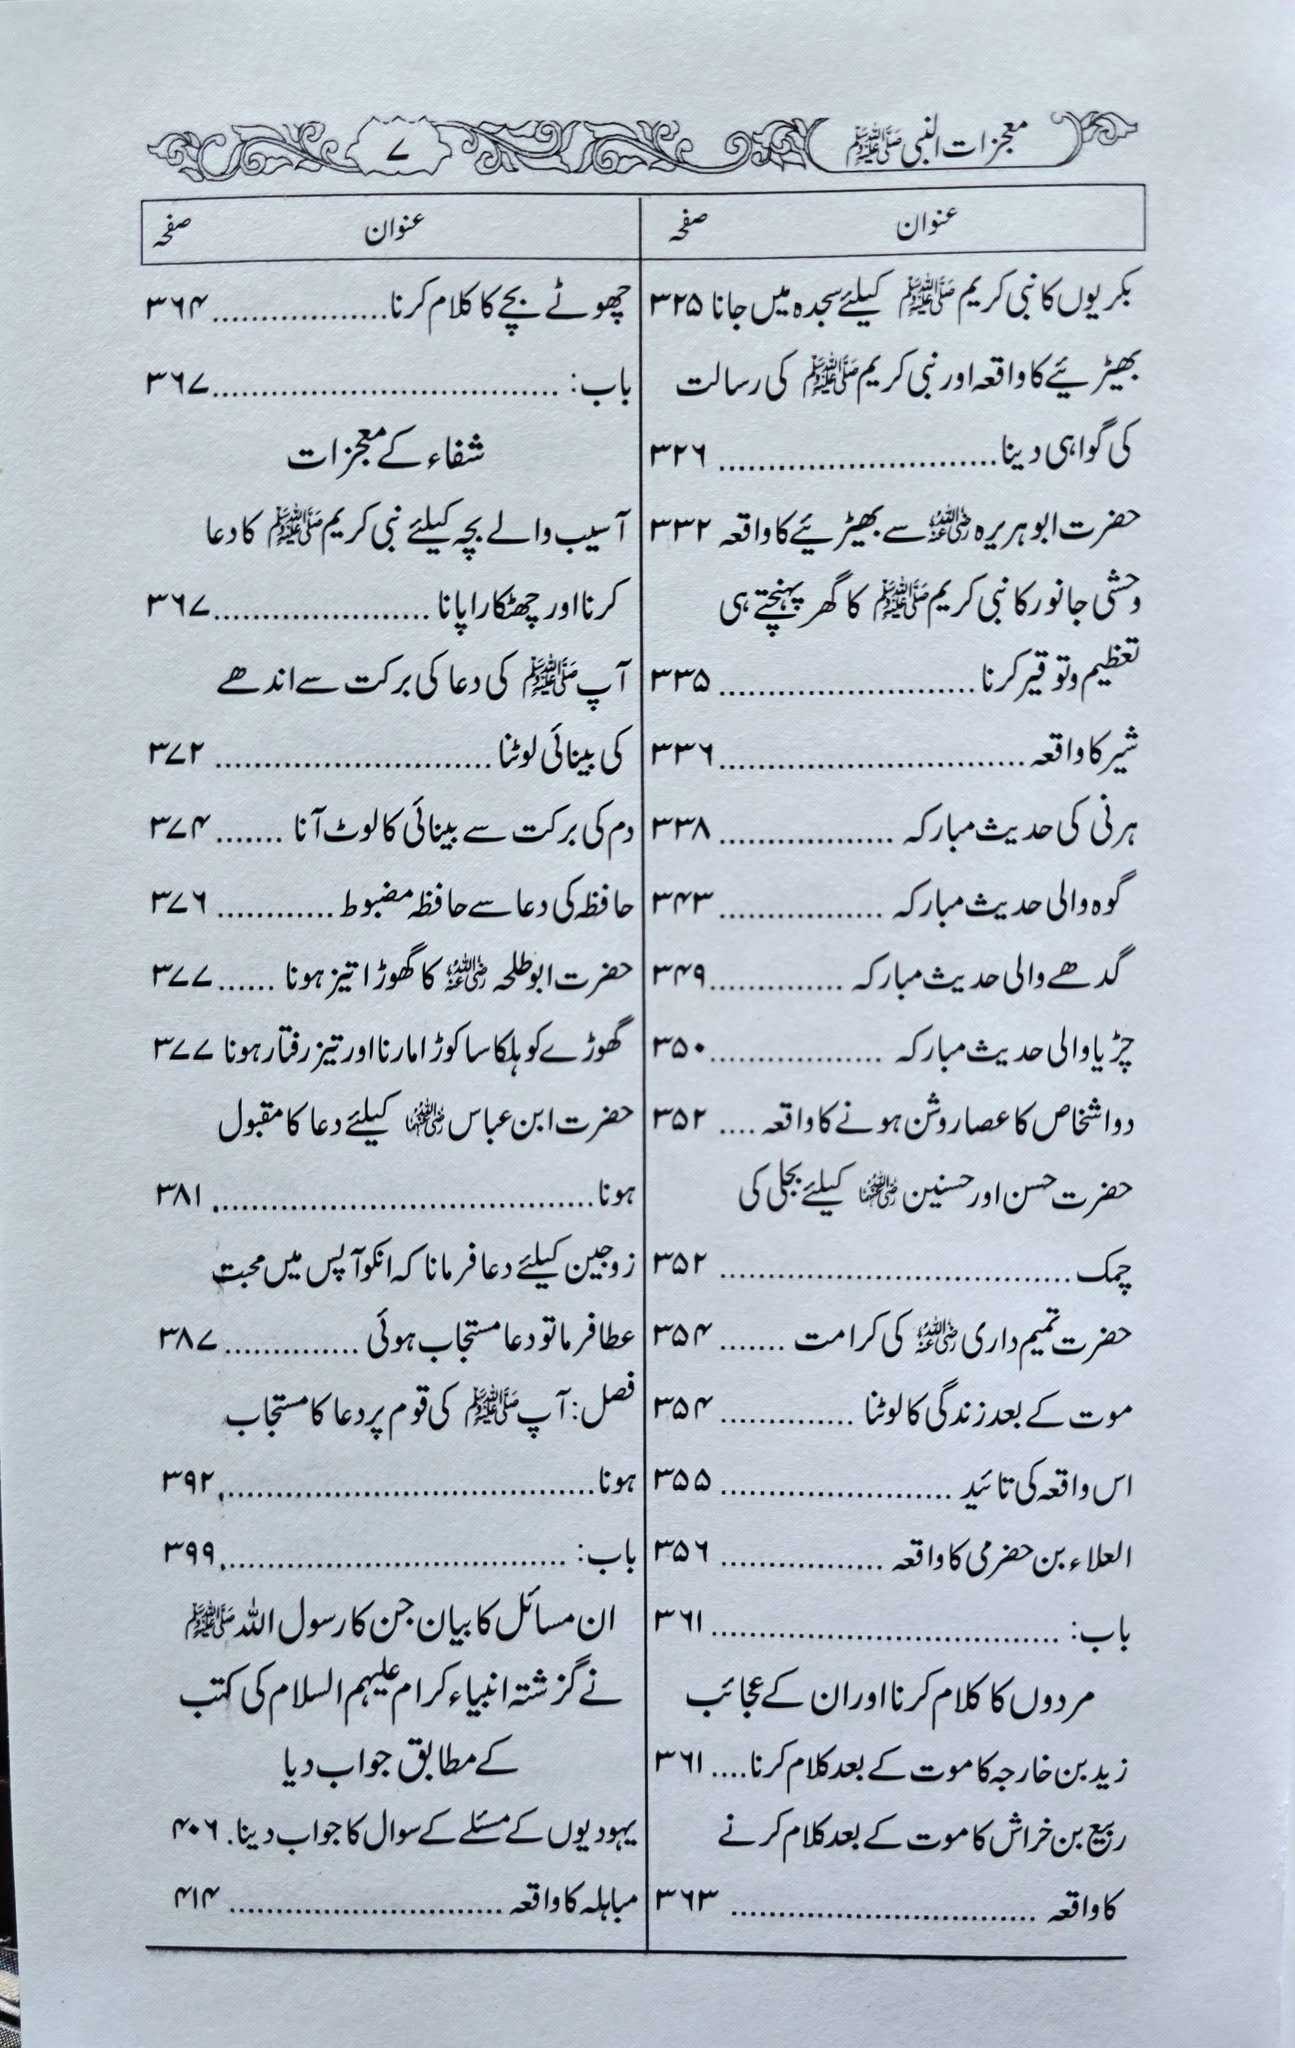 معجزات النبی ﷺ
۷
عنوان صفحہ
بکریوں کا نبی کریم ﷺ کیلئے سجدہ میں جانا ۳۲۵
بھیڑیئے کا واقعہ اور نبی کریم ﷺ کی رسالت
کی گواہی دینا ............................ ۳۲۶
حضرت ابو ہریرہ رضی اللہ عنہ سے بھیڑیئے کا واقعہ ۳۳۲
وحشی جانور کا نبی کریم ﷺ کا گھر پہنچتے ہی
تعظیم و توقیر کرنا .......................... ۳۳۵
شیر کا واقعہ ............................... ۳۳۶
ہرنی کی حدیث مبارکہ .................. ۳۳۸
گوہ والی حدیث مبارکہ ................. ۳۴۳
گدھے والی حدیث مبارکہ .............. ۳۴۹
چڑیا والی حدیث مبارکہ .................. ۳۵۰
دو اشخاص کا عصا روشن ہونے کا واقعہ .... ۳۵۲
حضرت حسن اور حسنین رضی اللہ عنہما کیلئے بجلی کی
چمک .................................... ۳۵۲
حضرت تمیم داری رضی اللہ عنہ کی کرامت ....... ۳۵۴
موت کے بعد زندگی کا لوٹنا .............. ۳۵۴
اس واقعہ کی تائید ........................ ۳۵۵
العلاء بن حضرمی کا واقعہ ................. ۳۵۶
باب: .................................... ۳۶۱
مردوں کا کلام کرنا اور ان کے عجائب
زید بن خارجہ کا موت کے بعد کلام کرنا .... ۳۶۱
ربیع بن خراش کا موت کے بعد کلام کرنے
کا واقعہ ............................... ۳۶۳
عنوان صفحہ
چھوٹے بچے کا کلام کرنا .................. ۳۶۴
باب: .................................... ۳۶۷
شفاء کے معجزات
آسیب والے بچہ کیلئے نبی کریم ﷺ کا دعا
کرنا اور چھٹکارا پانا ...................... ۳۶۷
آپ ﷺ کی دعا کی برکت سے اندھے
کی بینائی لوٹنا ............................ ۳۷۲
دم کی برکت سے بینائی کا لوٹ آنا ....... ۳۷۴
حافظہ کی دعا سے حافظہ مضبوط ............ ۳۷۶
حضرت ابوطلحہ رضی اللہ عنہ کا گھوڑا تیز ہونا ...... ۳۷۷
گھوڑے کو ہلکا سا کوڑا مارنا اور تیز رفتار ہونا ۳۷۷
حضرت ابن عباس رضی اللہ عنہما کیلئے دعا کا مقبول
ہونا ....................................... ۳۸۱
زوجین کیلئے دعا فرمانا کہ انکو آپس میں محبت
عطا فرما تو دعا مستجاب ہوئی .............. ۳۸۷
فصل: آپ ﷺ کی قوم پر دعا کا مستجاب
ہونا ....................................... ۳۹۲
باب: .................................... ۳۹۹
ان مسائل کا بیان جن کا رسول اللہ ﷺ
نے گزشتہ انبیاء کرام علیہم السلام کی کتب
کے مطابق جواب دیا
یہودیوں کے مسئلے کے سوال کا جواب دینا . ۴۰۶
مباہلہ کا واقعہ ............................ ۴۱۴